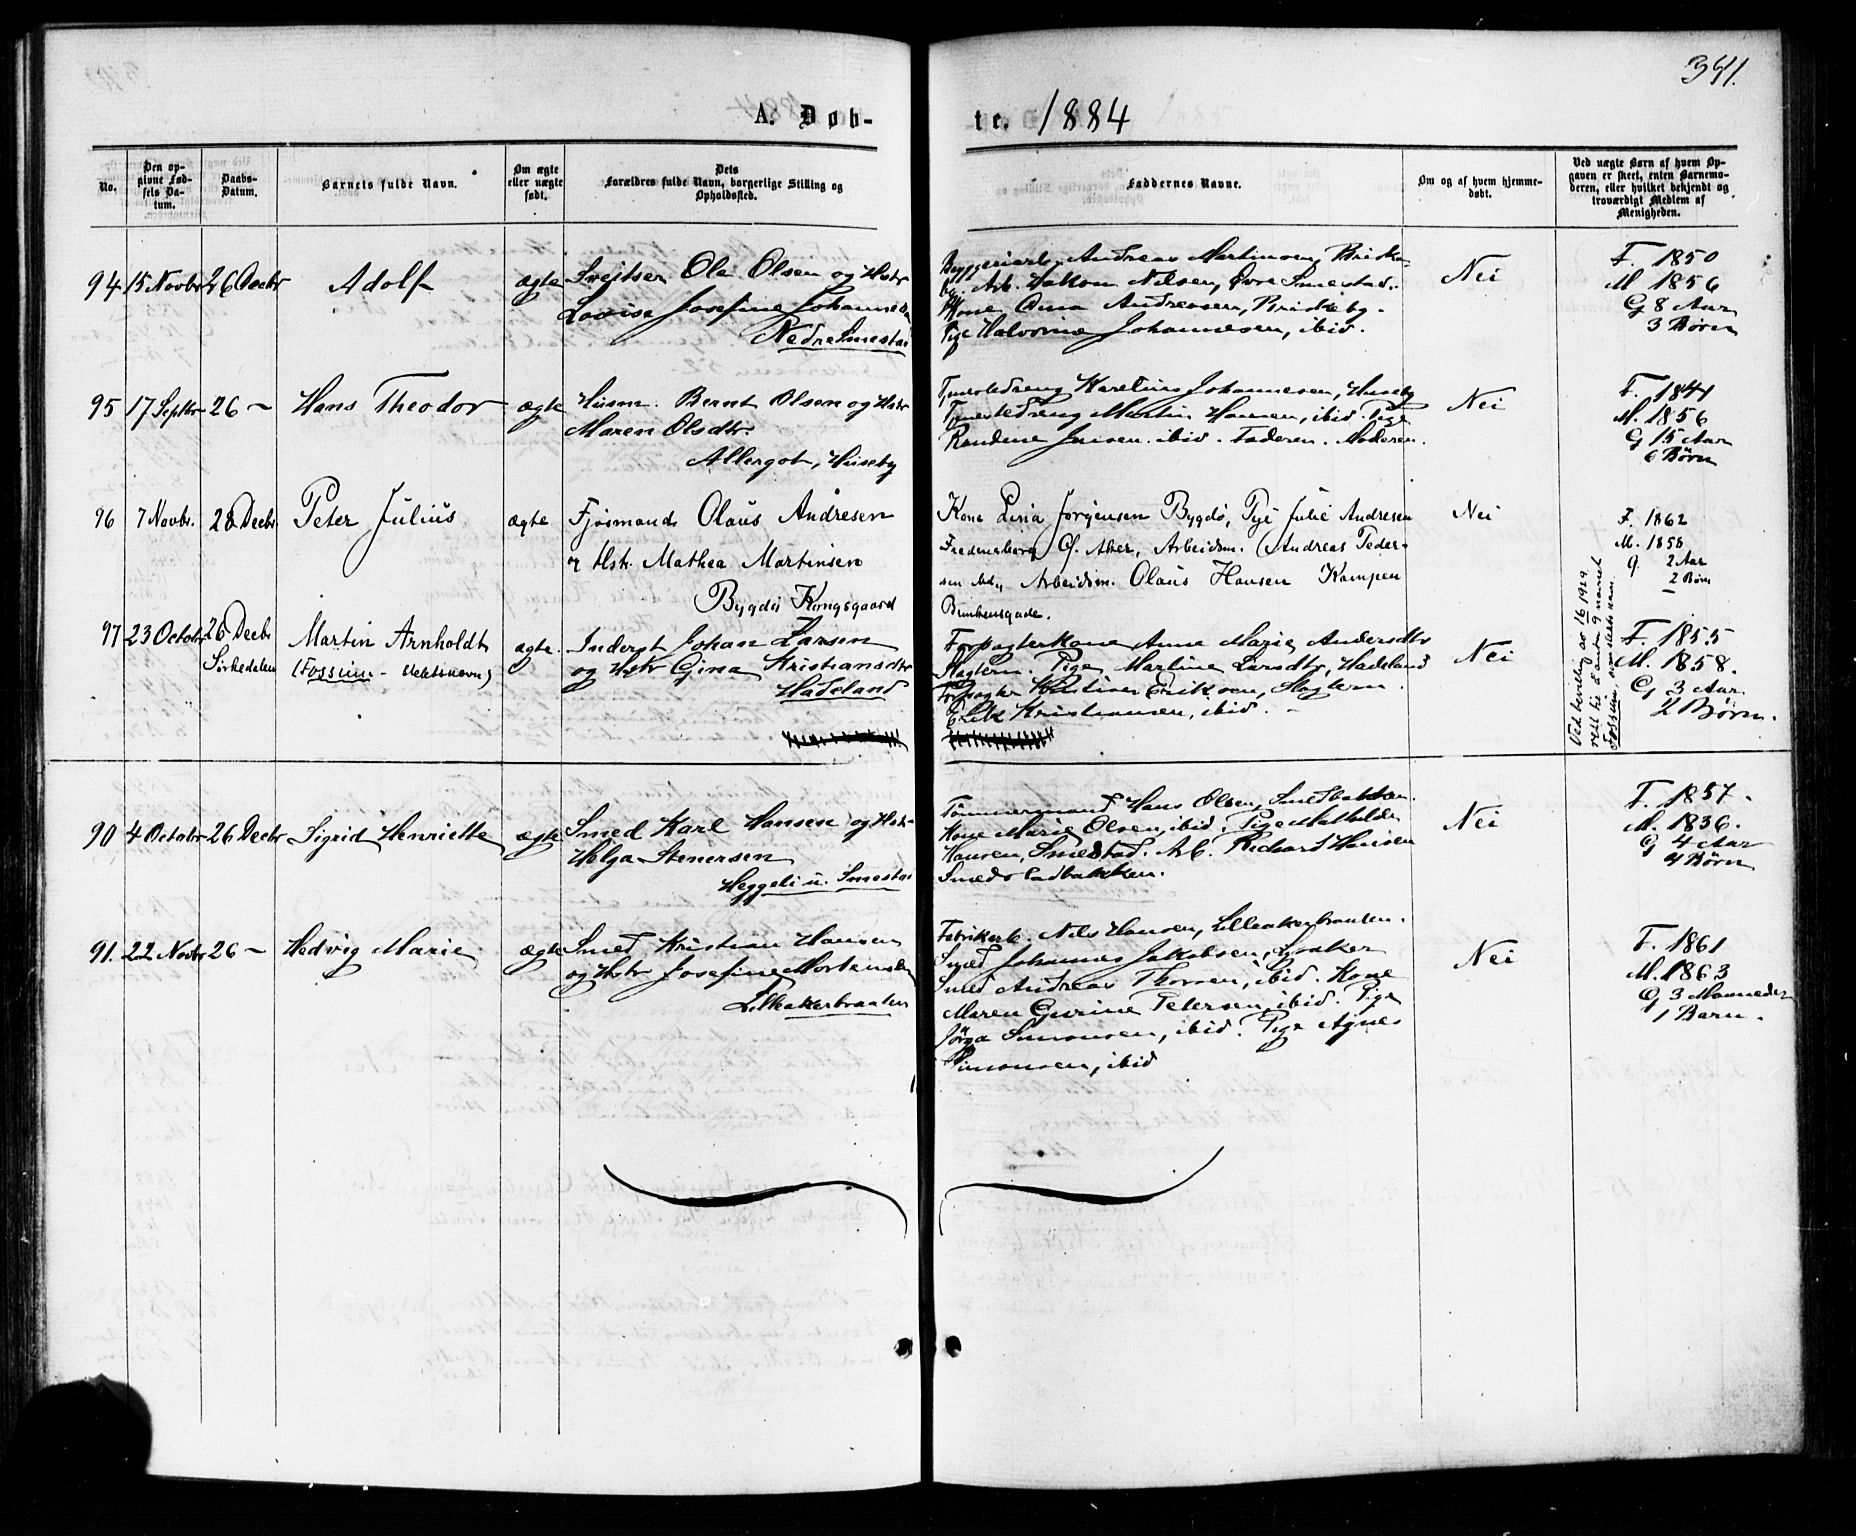 341.
A. Døb-
te. 1884
No.
Den op-
givne Fød-
sels Da-
tum.
Daabs-
Datum.
Barnets fulde Navn.
Om ægte
eller uægte
født.
Dets
Forældres fulde Navn, borgerlige Stilling og
Opholdssted.
Faddernes Navne.
Om og af hvem hjemme-
døbt.
Ved uægte Børn af hvem Op-
gaven er skeet, enten Barnemo-
deren, eller hvilket bekjendt og
troværdigt Medlem af
Menigheden.
94 15 Novbr 26 Decbr Adolf ægte
Sveitser Ole Olsen og Hstr
Lovise Josefine Johannesen
Nedre Smestad
Byggeriarb. Andreas Martinsen, Briske-
by. Arb. Hakon Nilsen, Øvre Smestad.
Kone Oma Andreasen, Briskeby.
Pige Halvorine Johannesen, ibid.
Nei
F. 1850
M 1856
G 8 Aar
3 Børn
95 17 Septbr 26 – Hans Theodor ægte
Husm. Bernt Olsen og Hstr
Maren Olsdtr.
Allergot, Huseby
Tjenestedreng Karelius Johannesen, Huseby
Tjenestedreng Martin Hansen, ibid. Pige
Randine Jensen ibid. Faderen. Moderen.
Nei
F. 1841
M. 1856
G 15 Aar
6 Børn
96 7 Novbr. 28 Decbr Peter Julius ægte
Fjøsmand Olaus Andresen
og Hstr. Mathea Martinsen
Bygdø Kongsgaard
Kone Lina Jørgensen Bygdø, Pige Julie Andresen
Fredensborg Ø. Aker, Arbeidsm. Andreas Peder-
sen Arbeidsm. Olaus Hansen Kampen
Brinkensgade.
Nei
F. 1862
M. 1858
G. 2 Aar
2 Børn
97 23 Octobr 26 Decbr
Sørkedalen
Martin Arnholdt
(Fossum - slektsnavn)
ægte.
Inderst Johan Larsen
og Hstr Gina Kristiansdtr
Hadeland
Forpagterkone Anne Marie Andersdtr
Slagtern. Pige Martine Larsdtr, Hadeland
Forpagter Kristian Eriksen, Slagtern.
Erik Kristiansen, ibid. –
Nei
Ved bevilling av 16/6 1929
rett til å anta 9 navnet
Fossum, som slektsnavn
F. 1855
M. 1858.
G 3 Aar
2 Børn.
90 4 Octobr 26 Decbr Sigrid Henriette ægte
Smed Karl Hansen og Hstr
Helga Stenersen
Heggeli u. Smestad
Tømmermand Hans Olsen, Smedbakken.
Kone Marie Olsen, ibid. Pige Mathilde
Hansen, Smestad. Arb. Richard Hansen
Smedstadbakken.
Nei
F. 1857.
M. 1836.
G 4 Aar
4 Børn
91. 22 Novbr 26 – Hedvig Marie ægte
Smed Kristian Hansen
og Hstr Josefine Mortensen
Lilleakerbraaten
Fabrikarb. Nils Hansen, Lilleakerbraaten.
Smed Johannes Jakobsen, Lysaker
Smed Andreas Thorsen, ibid. Kone
Maren Gurine Petersen, ibid. Pige
Jørga Simonsen, ibid. Pige Agnes
Simonsen, ibid
Nei
F. 1861
M. 1863
G 3 Maaneder
1 Barn.